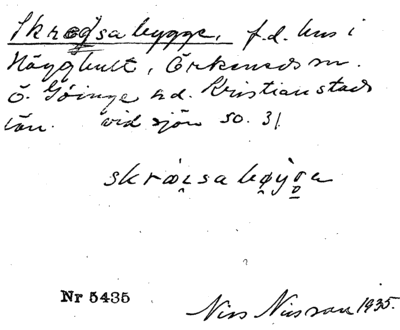 Skregsabygge, f.d. hus i
Hägghult, Örkeneds sn.
Ö. Göinge hd. Kristianstads
län. vid sjön so. 31
Nr 5435
Nils Nilsson 1935.